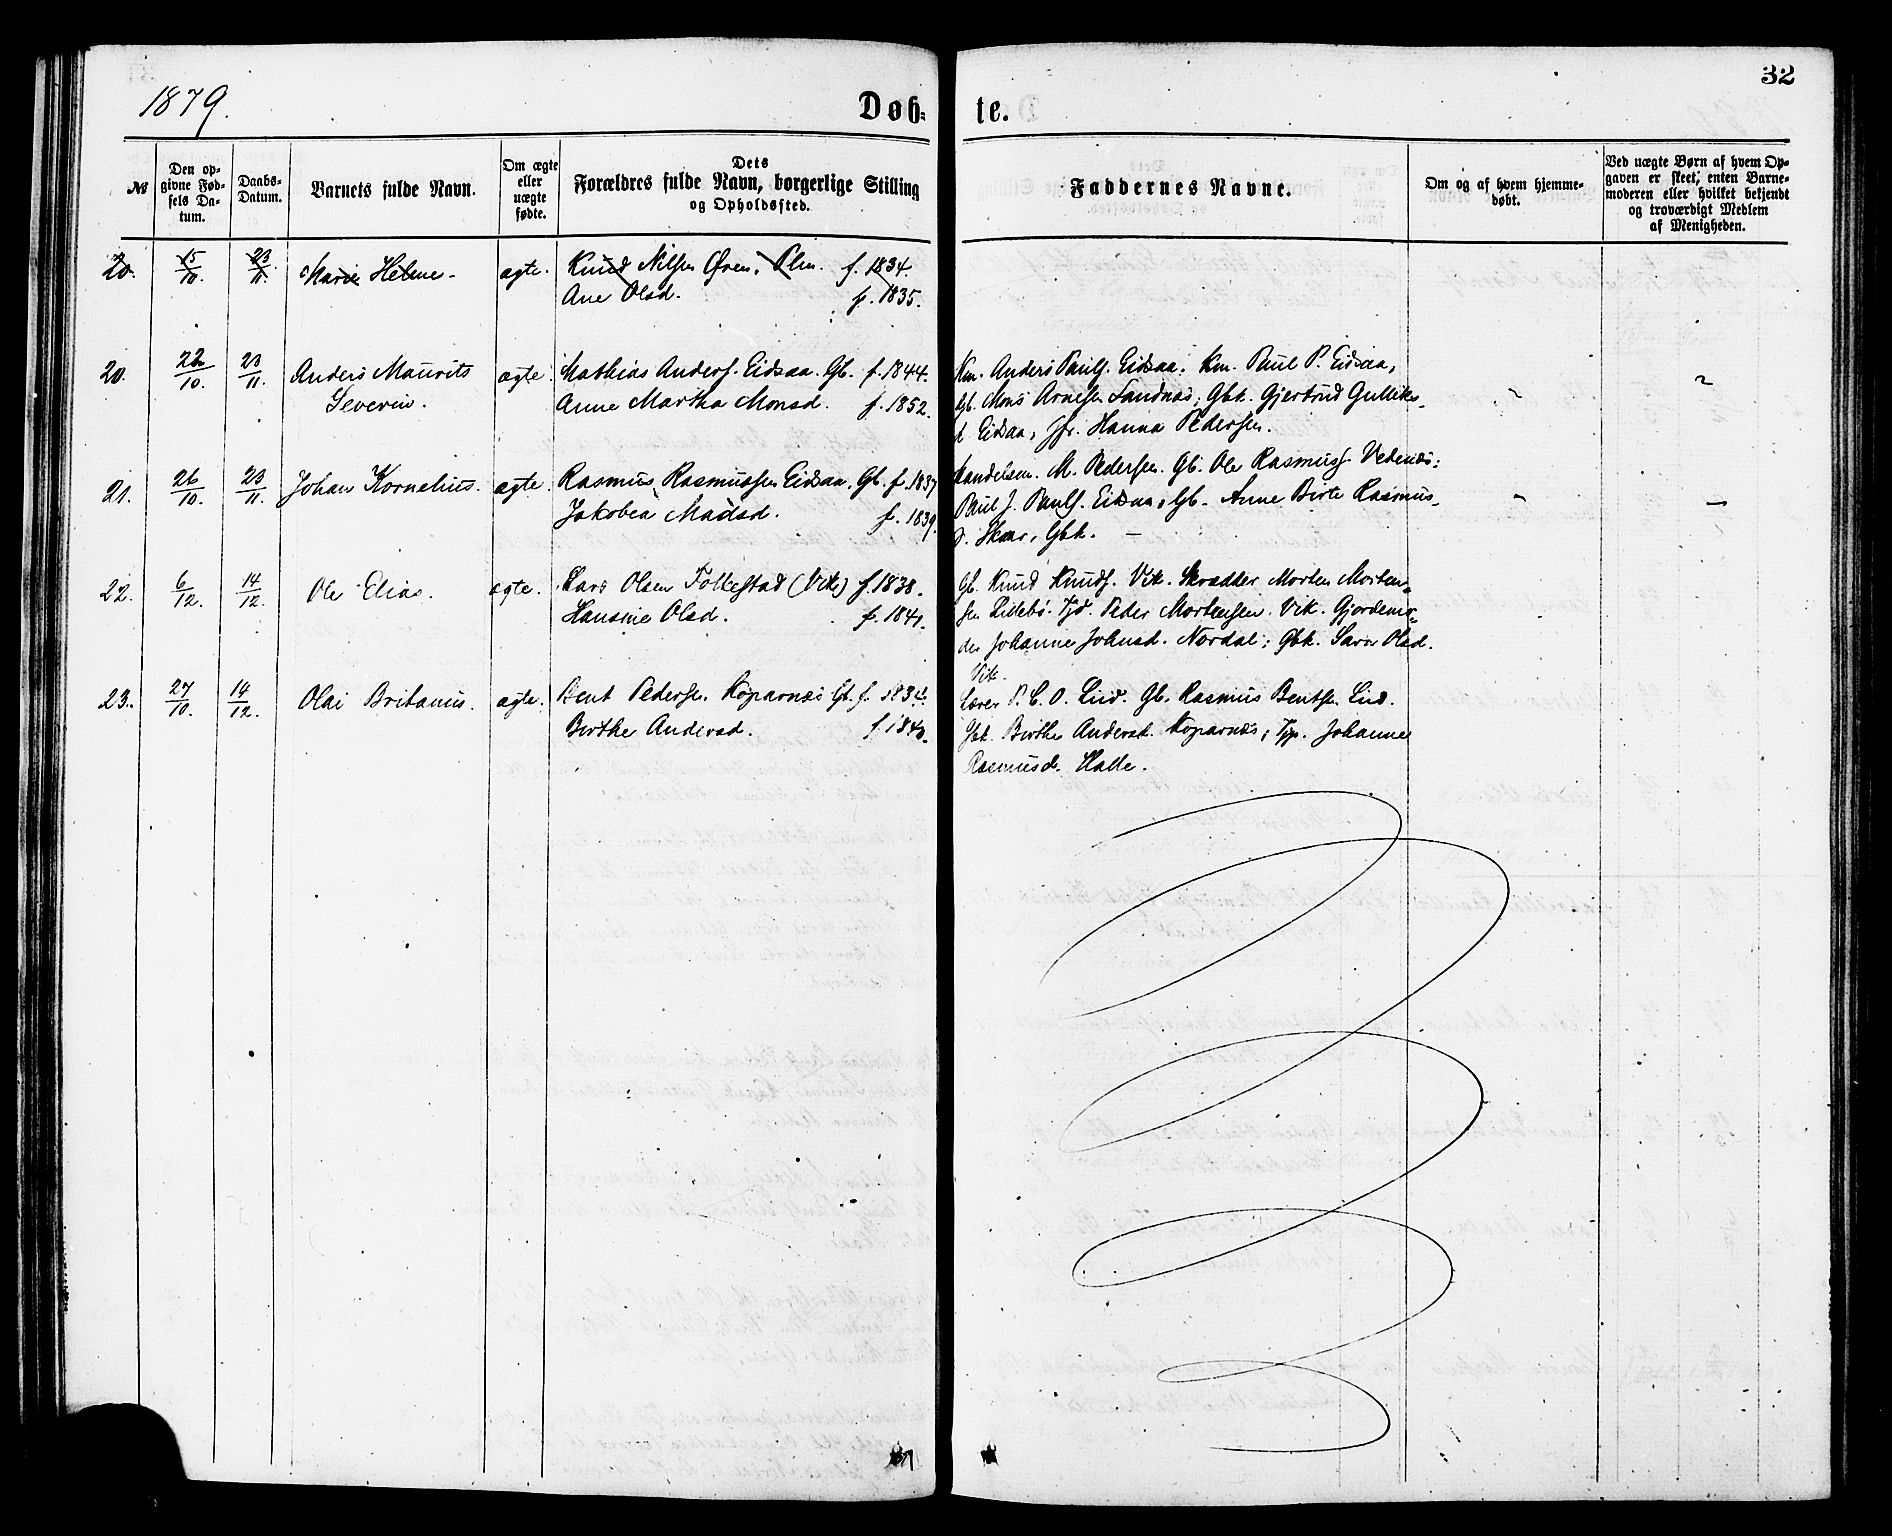 1879.
Døb-
te.
32
№
Den op-
givne Fød-
sels Da-
tum.
Daabs-
Datum.
Barnets fulde Navn.
Om ægte
eller
uægte
fødte.
Dets
Forældres fulde Navn, borgerlige Stilling
og Opholdssted.
Faddernes Navne.
Om og af hvem hjemme-
døbt.
Ved uægte Børn af hvem Op-
gaven er skeet, enten Barne-
moderen eller hvilket bekjendt
og troværdigt Medlem
af Menigheden.
20. 15/10. 23/11. Marie Helene - ægte. Knud Nilsen Øren, f. 1834.
Ane Olsd. f. 1835.
20. 22/10. 23/11. Anders Maurits ægte. Mathias Anders. Eidsaa. Gb. f. 1844.
Severin. Anne Martha Monsd. f. 1852.
Km. Anders Pauls. Eidsaa, Km. Paul P. Eidsaa,
Gb. Mons Arnesen Sandnæs, Gbk. Gjertrud Gulliks-
d. Eidsaa, Jfr. Hanna Pedersen.
21. 26/10. 23/11. Johan Kornelius. ægte. Rasmus Rasmussen Eidsaa, Gb. f. 1837
Jakobea Madsd. f. 1839.
Handelsm. M. Pedersen. Gb. Ole Rasmuss. Vedenæs;
Paul J. Pauls. Eidsaa, Gb. Anne Birte Rasmus-
d. Skaar, Gbk. —
22. 6/12. 14/12. Ole Elias. ægte. Lars Olsen Folkestad (Vik) f. 1838.
Hansine Olsd. f. 1841.
Gb. Knud Knuds. Vik. Skrædder Morten Morten-
sen Lillebø. Tjd. Peder Mortensen. Vik. Gjordemo-
der Johanne Johnsd. Nordal; Gbk. Olsd.
Vik.
23. 27/10. 14/12. Olai Britanus. ægte. Bent Pedersen. Koparnæs Gb. f. 1834.
Birthe Andersd. f. 1840.
Lærer P. C. O. Lid. Gb. Rasmus Bentsen Lid.
Gbk. Birthe Andersd. Koparnæs; Tjp. Johanne
Rasmusd. Halle.